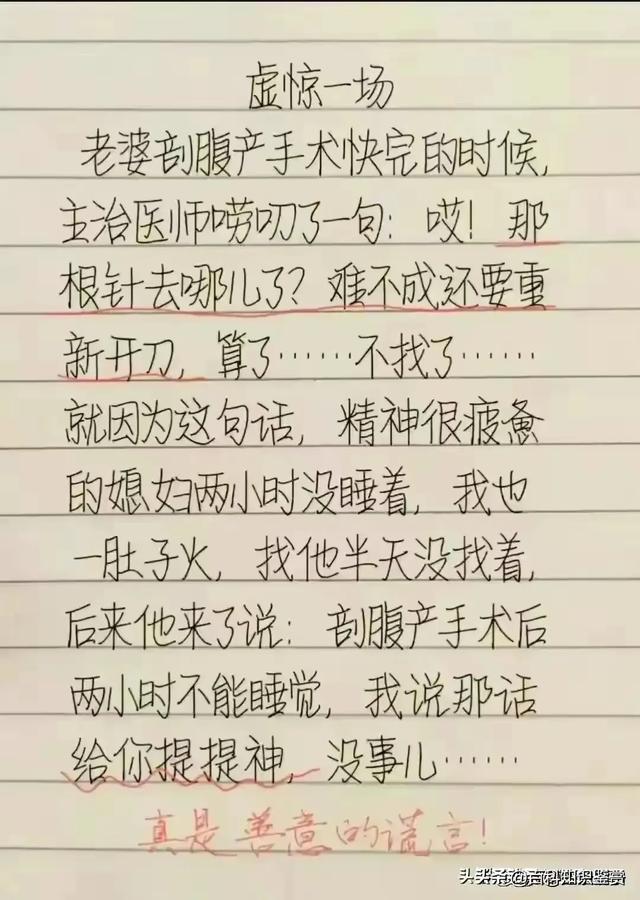 虚惊一场
老婆剖腹产手术快完的时候,
主治医师唠叨了一句: 哎! 那
根针去哪儿了? 难不成还要重
新开刀, 算了……不找了……
就因为这句话, 精神很疲惫
的媳妇两小时没睡着, 我也
一肚子火, 找他半天没找着,
后来他来了说: 剖腹产手术后
两小时不能睡觉, 我说那话
给你提提神, 没事儿……
真是善意的谎言!